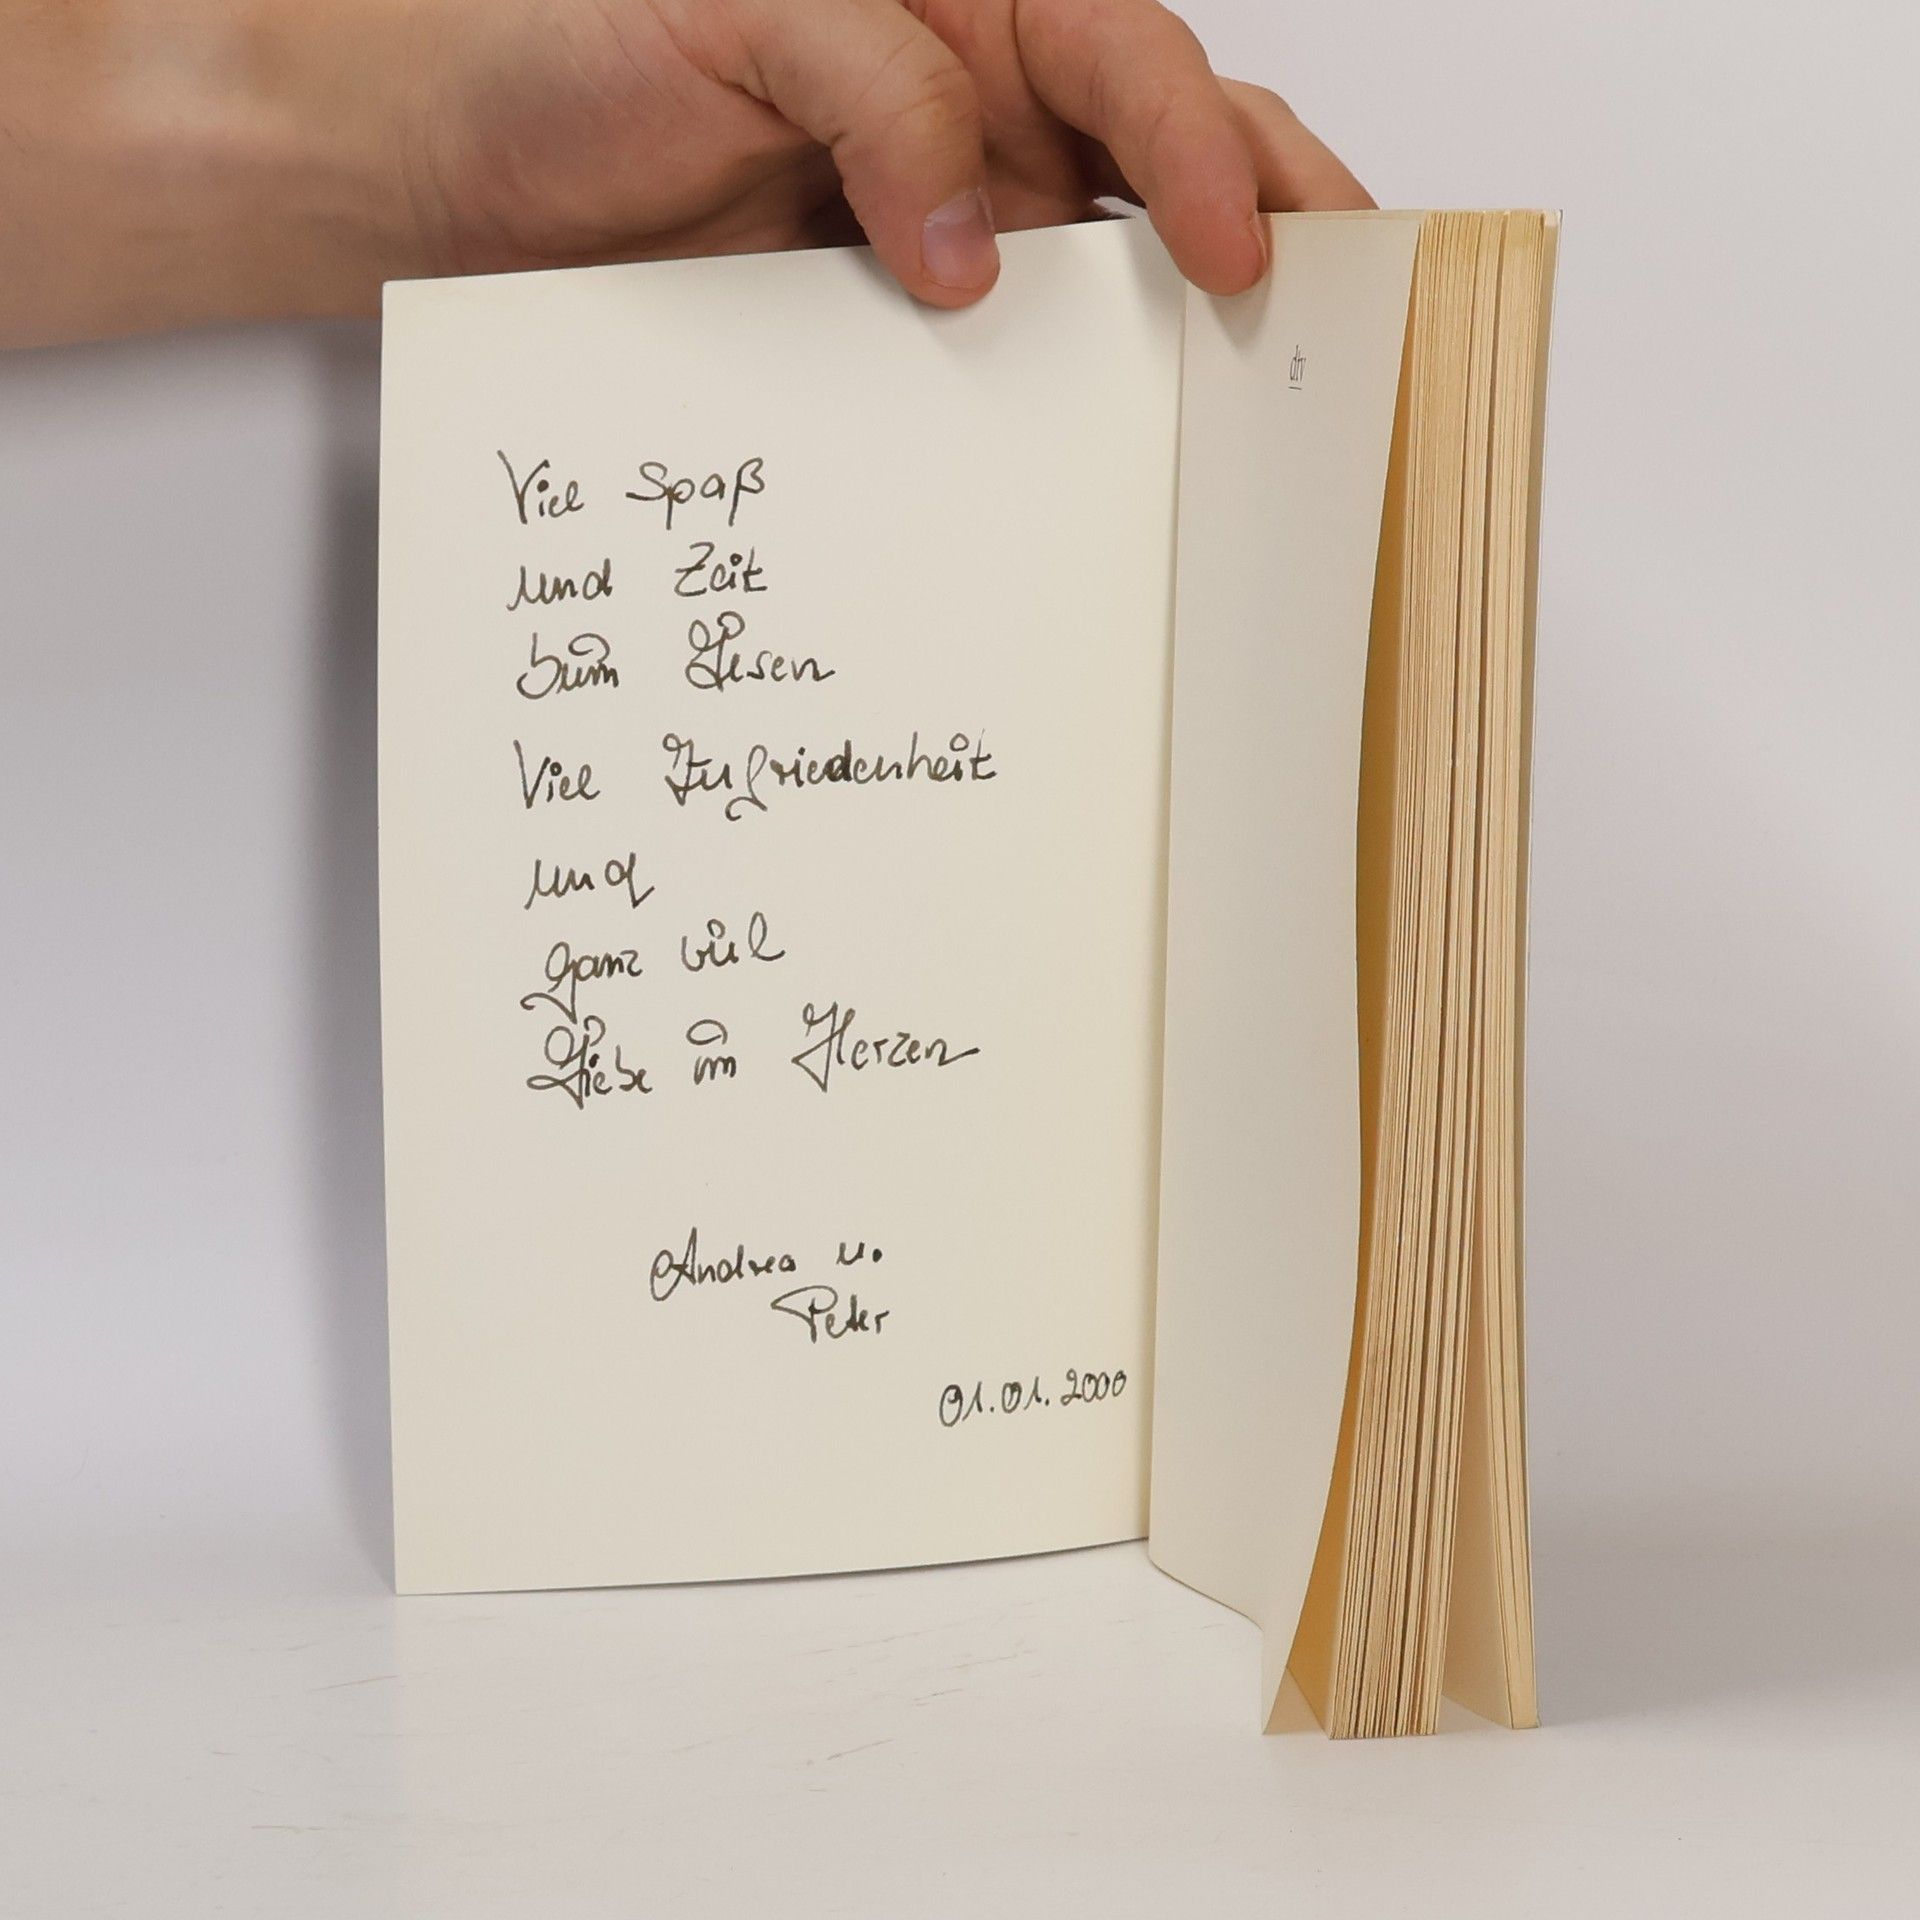 Viel Spaß
und Zeit
beim Lesen
Viel Zufriedenheit
und
ganz viel
Liebe im Herzen
Andrea u.
Peter
01.01.2000
dtv